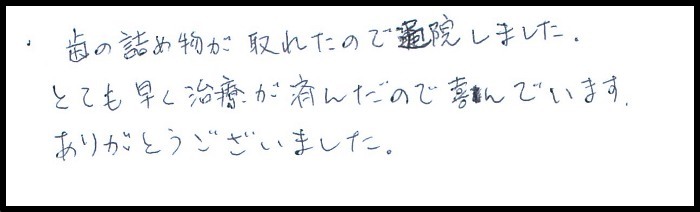 ・歯の詰め物が取れたので通院しました.
とても早く治療が済んだので喜んでいます.
ありがとうございました。